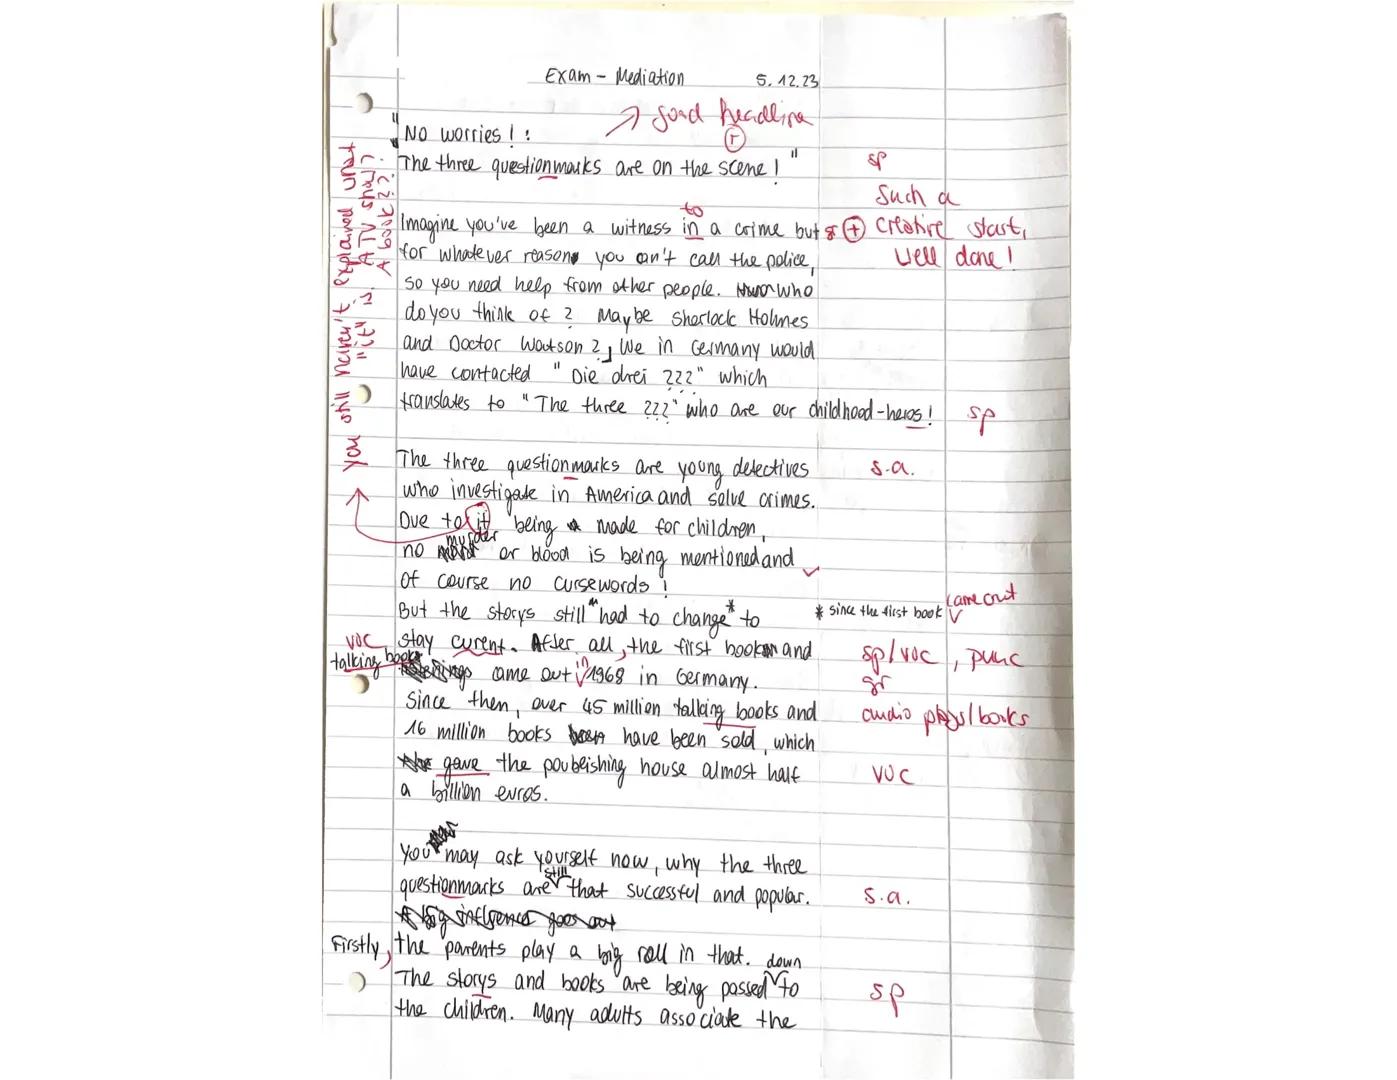 Exam - Mediation 5.12.23
→ good headline
"No worries!:
The three questionmarks are on the scene!" sp
+ Such a creative start, well done!
to
Imagine you've been a witness in a crime but
for whatever reason you can't call the police,
so you need help from other people. Who
do you think of? Maybe Sherlock Holmes
and Doctor Watson? We in Germany would
have contacted "Die drei ???" which
translates to "The three ???" who are our childhood-heros! sp
You still haven't explained what "it" is. A TV show? A book??
The three questionmarks are young detectives s.a.
who investigate in America and solve crimes.
Due to it being made for children,
no murder or blood is being mentioned and
of course no cursewords!
But the storys still had to change* to * since the first book came out
stay curent. After all, the first book and sp/voc, punc
voc talking books came out in 1968 in Germany. gr
Since then, over 45 million talking books and audio plays/books
16 million books have been sold, which
gave the poubeishing house almost half voc
a billion euros.
You may ask yourself now, why the three
questionmarks are still that successful and popular. s.a.
Firstly, the parents play a big roll in that.
The storys and books are being passed down to sp
the children. Many adults associate the